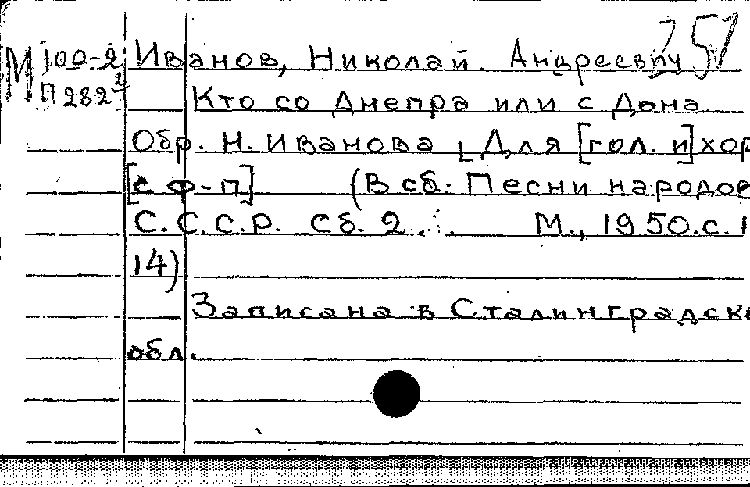 251
М 100-2 Иванов, Николай Андреевич
П 282² Кто со Днепра или с Дона
Обр. Н. Иванова [Для [гол. и] хор
[с ф-п] (В сб. Песни народов
С.С.С.Р. Сб. 2. М., 1950. с. 1
14)
Записана в Сталинградско
обл.